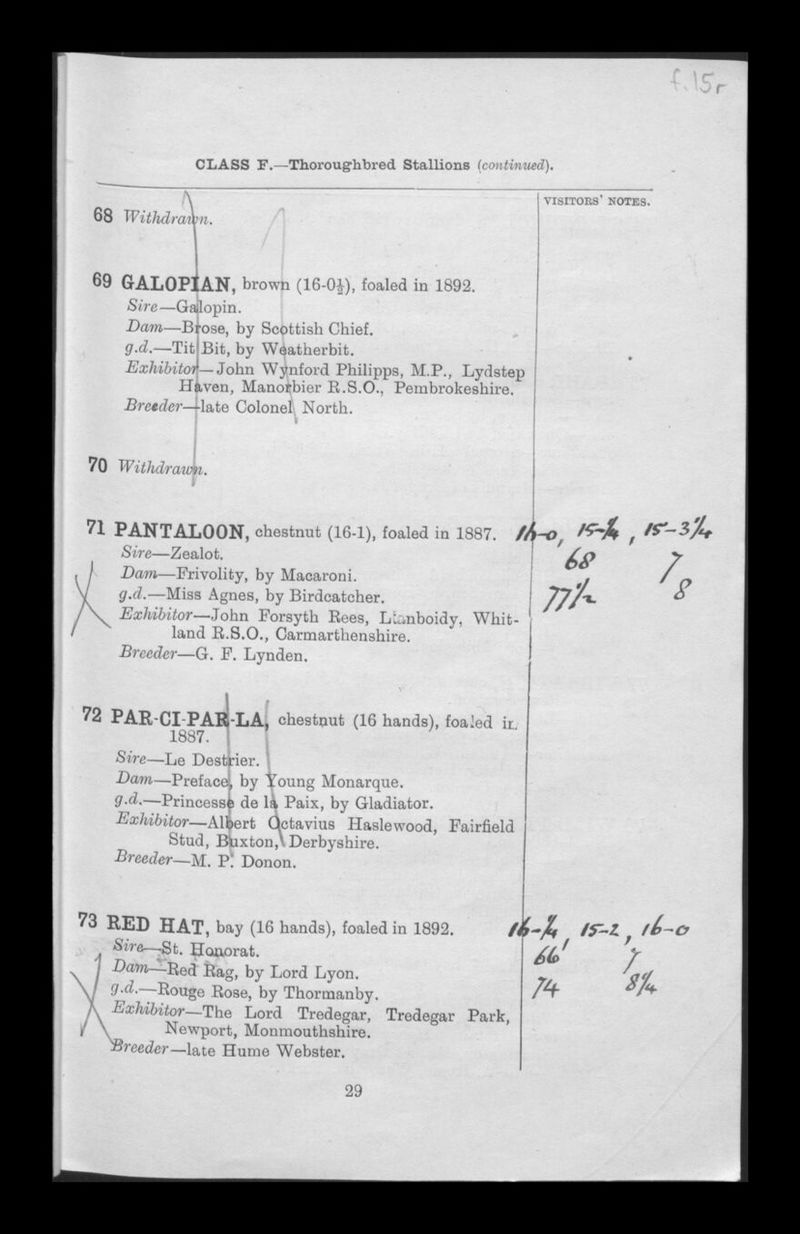 f.15r
CLASS F.—Thoroughbred Stallions (continued).
VISITORS' NOTES.
68 Withdrawn.
69 GALOPIAN, brown (16-0½), foaled in 1892.
Sire—Galopin.
Dam—Brose, by Scottish Chief.
g.d.—Tit Bit, by Weatherbit.
Exhibitor—John Wynford Philipps, M.P., Lydstep
Haven, Manorbier R.S.O., Pembrokeshire.
Breeder—late Colonel North.
70 Withdrawn.
71 PANTALOON, chestnut (16-1), foaled in 1887. 16-0, 15-¼, 15-3¼
Sire—Zealot. 68 7
Dam—Frivolity, by Macaroni.
g.d.—Miss Agnes, by Birdcatcher. 77½ 8
Exhibitor—John Forsyth Rees, Llanboidy, Whit-
land R.S.O., Carmarthenshire.
Breeder—G. F. Lynden.
72 PAR-CI-PAR-LA, chestnut (16 hands), foaled in
1887.
Sire—Le Destrier.
Dam—Preface, by Young Monarque.
g.d.—Princesse de la Paix, by Gladiator.
Exhibitor—Albert Octavius Haslewood, Fairfield
Stud, Buxton, Derbyshire.
Breeder—M. P. Donon.
73 RED HAT, bay (16 hands), foaled in 1892. 16-¼, 15-2, 16-0
Sire—St. Honorat. 66 7
Dam—Red Rag, by Lord Lyon.
g.d.—Rouge Rose, by Thormanby. 74 8¼
Exhibitor—The Lord Tredegar, Tredegar Park,
Newport, Monmouthshire.
Breeder—late Hume Webster.
29